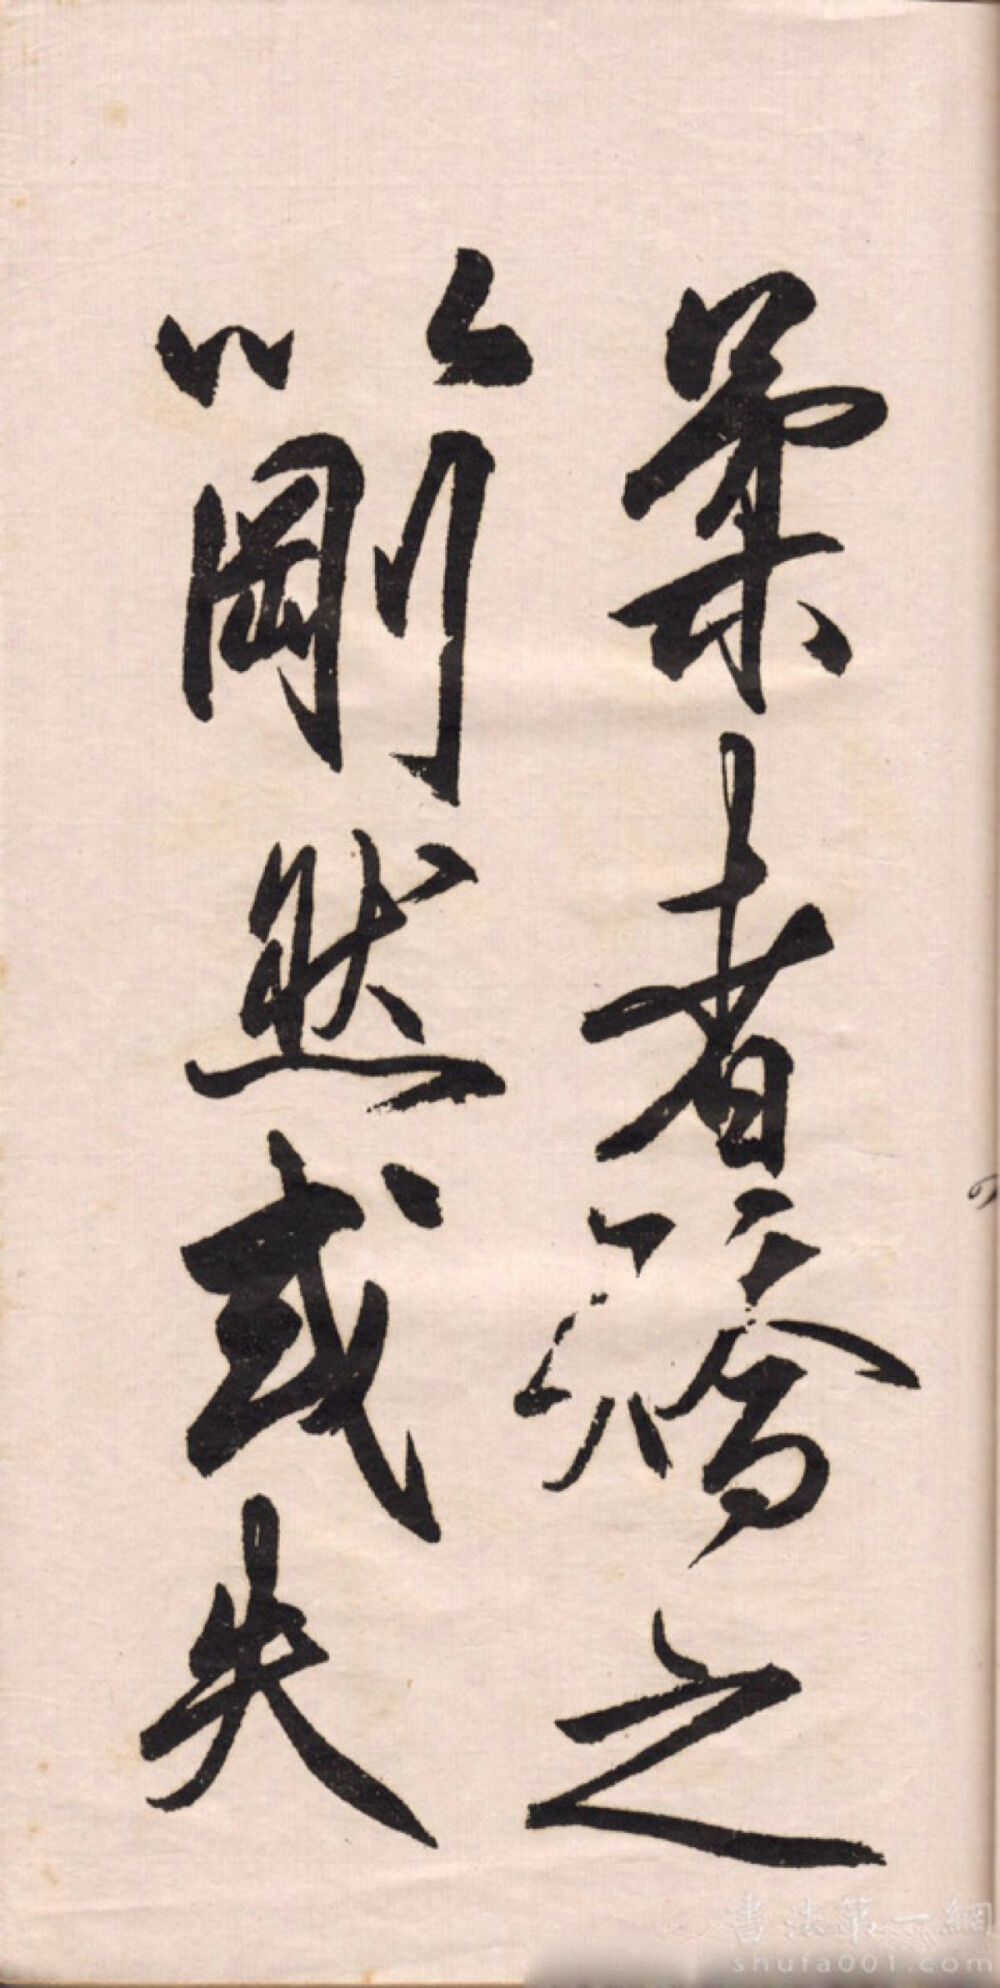 柔者矯之
以剛然或失
書法第一網
shufa001.com